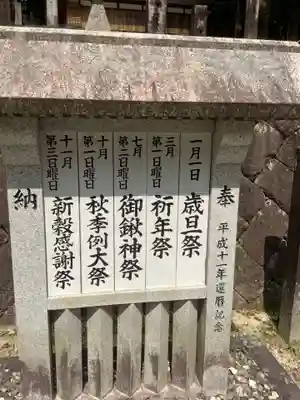 奉
平成十一年還暦記念
一月一日 歳旦祭
三月
第一日曜日 祈年祭
七月
第二日曜日 御鍬神祭
十月
第一日曜日 秋季例大祭
十一月
第三日曜日 新穀感謝祭
納